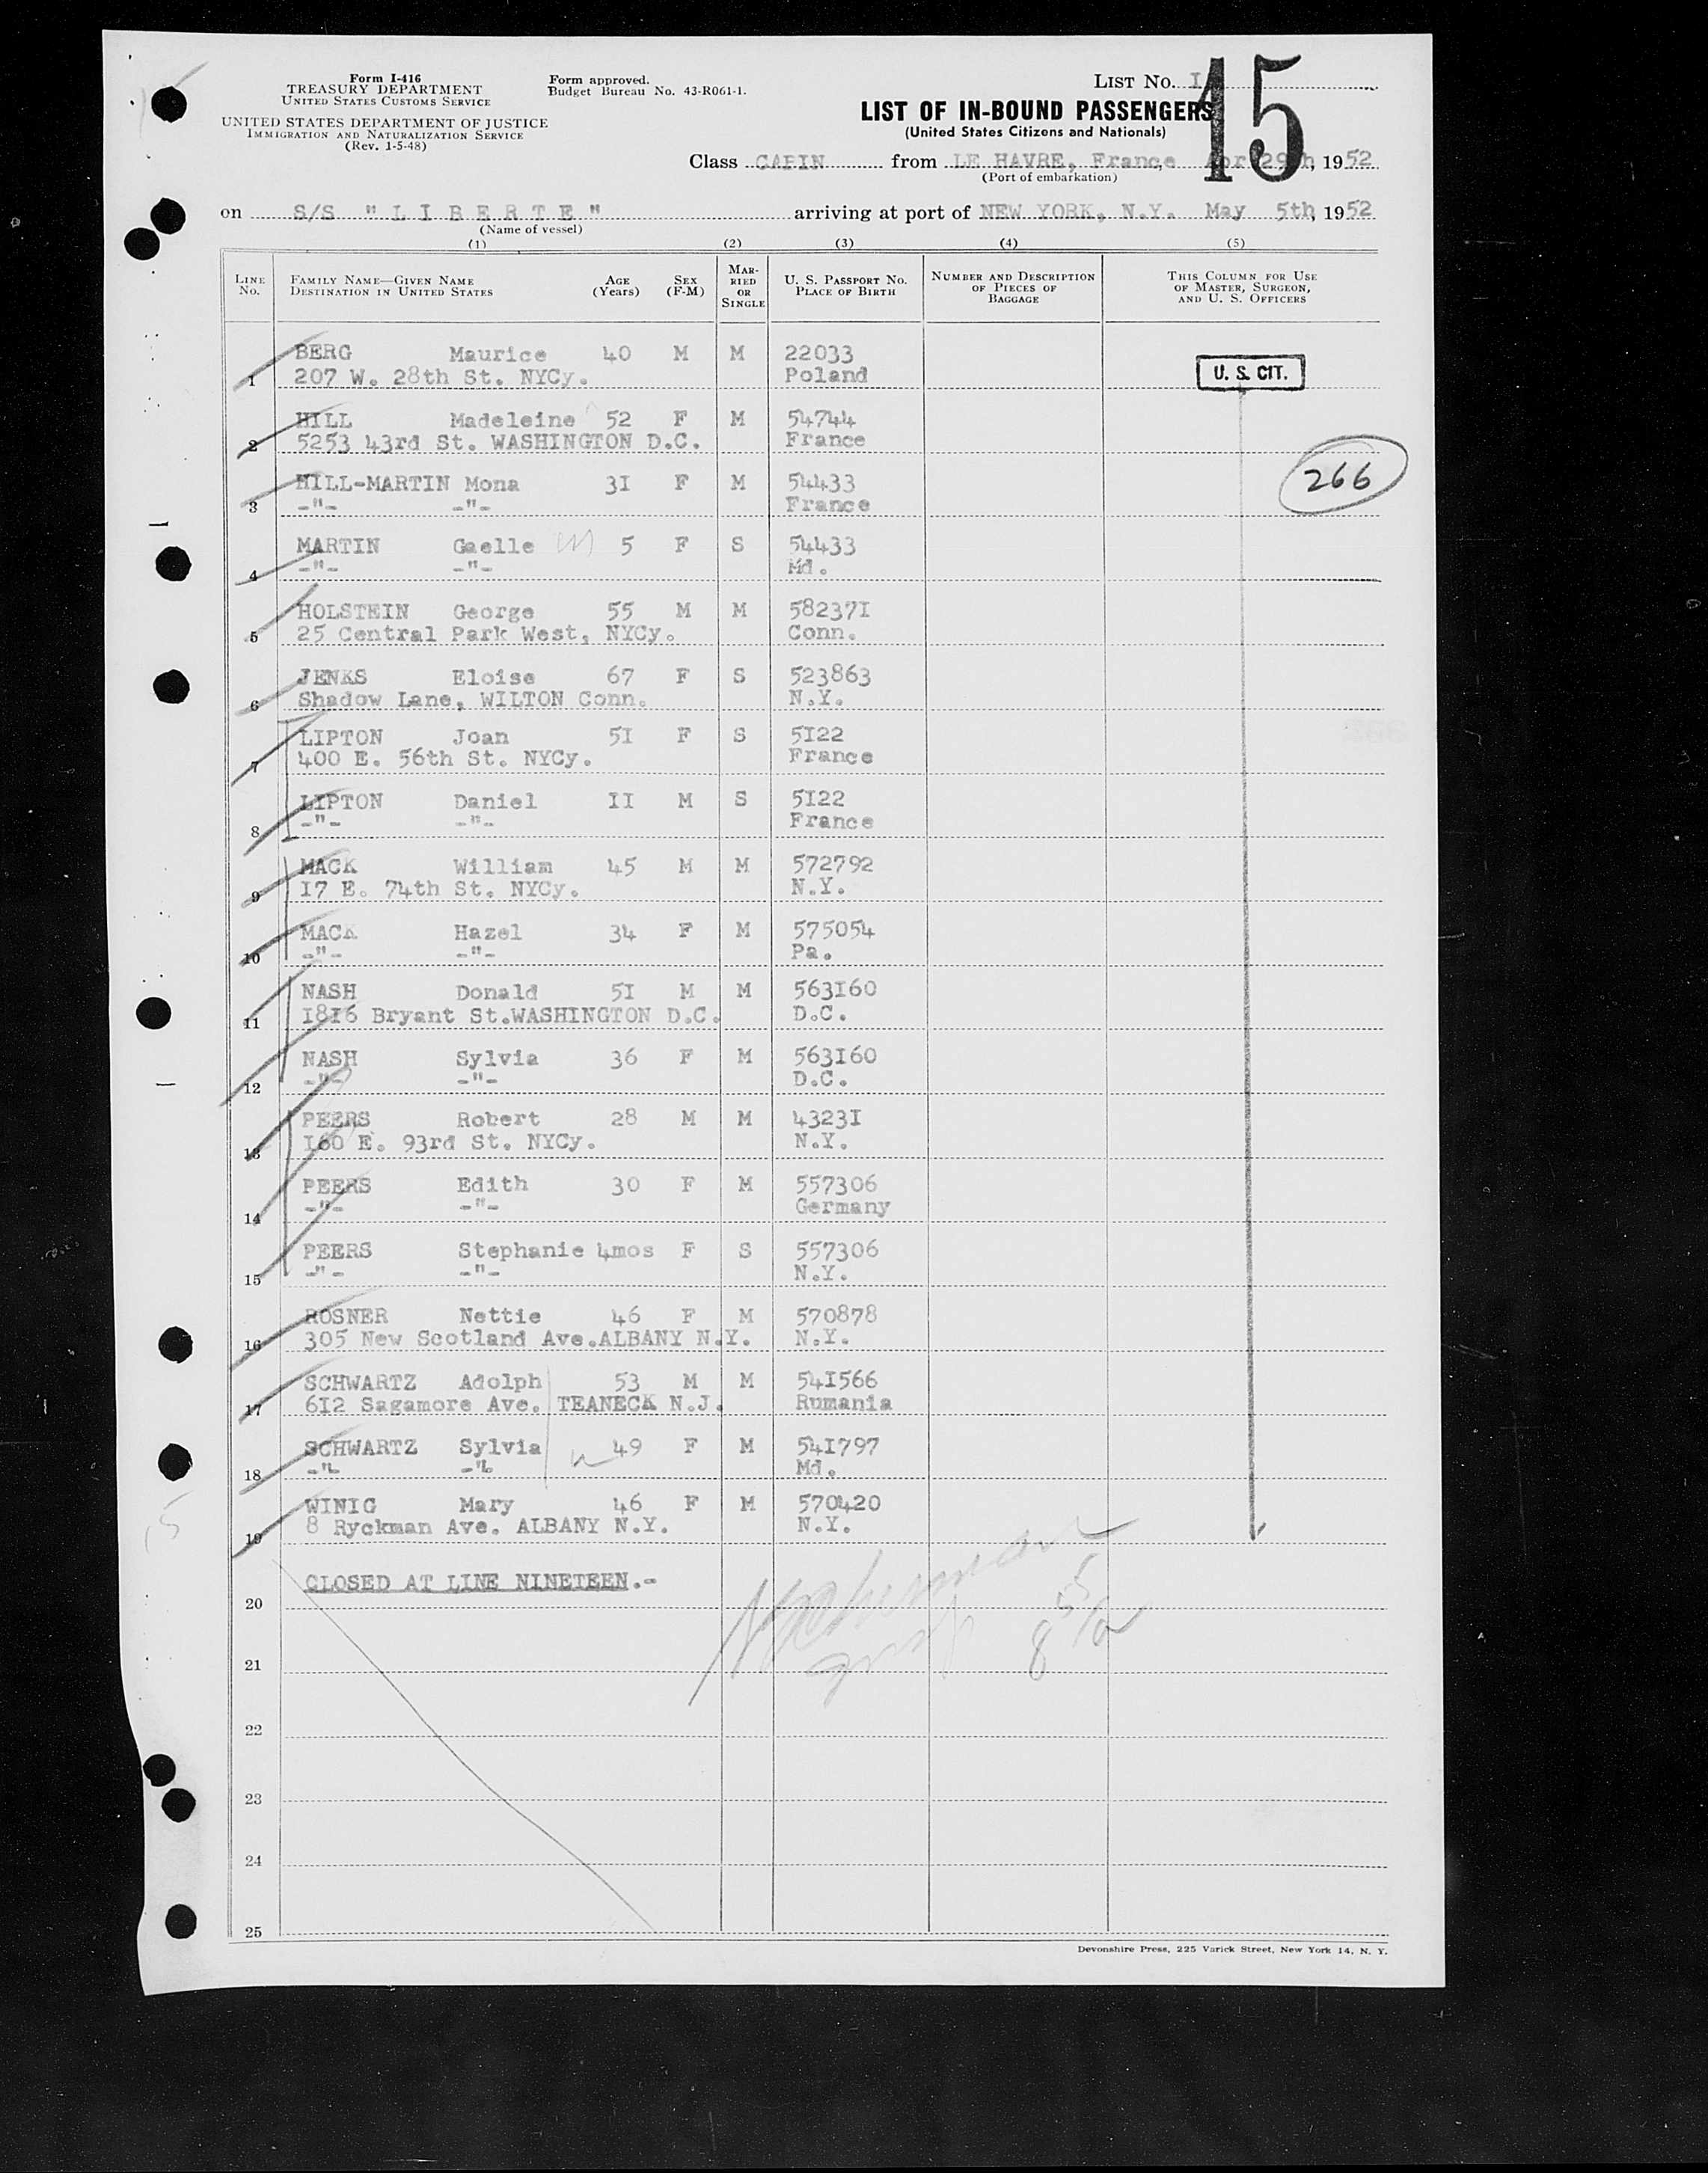 Form I-416
TREASURY DEPARTMENT
UNITED STATES CUSTOMS SERVICE
UNITED STATES DEPARTMENT OF JUSTICE
IMMIGRATION AND NATURALIZATION SERVICE
(Rev. 1-5-48)
Form approved.
Budget Bureau No. 43-R061-1.
LIST NO. I
15
LIST OF IN-BOUND PASSENGERS
(United States Citizens and Nationals)
Class CABIN from LE HAVRE, France, Apr 29th, 1952
(Port of embarkation)
on S/S "LIBERTE" arriving at port of NEW YORK, N.Y. May 5th, 1952
(Name of vessel)
(1) (2) (3) (4) (5)
LINE NO. FAMILY NAME—GIVEN NAME DESTINATION IN UNITED STATES AGE (Years) SEX (F-M) MARRIED OR SINGLE U. S. PASSPORT NO. PLACE OF BIRTH NUMBER AND DESCRIPTION OF PIECES OF BAGGAGE THIS COLUMN FOR USE OF MASTER, SURGEON, AND U. S. OFFICERS
BERG Maurice 40 M M 22033
1 207 W. 28th St. NYCy. Poland U. S. CIT.
HILL Madeleine 52 F M 54744
2 5253 43rd St. WASHINGTON D.C. France
266
HILL-MARTIN Mona 3I F M 54433
3 -"- -"- France
MARTIN Gaelle 5 F S 54433
4 -"- -"- Md.
HOLSTEIN George 55 M M 58237I
5 25 Central Park West, NYCy. Conn.
JENKS Eloise 67 F S 523863
6 Shadow Lane, WILTON Conn. N.Y.
LIPTON Joan 5I F S 5I22
7 400 E. 56th St. NYCy. France
LIPTON Daniel II M S 5I22
8 -"- -"- France
MACK William 45 M M 572792
9 I7 E. 74th St. NYCy. N.Y.
MACK Hazel 34 F M 575054
10 -"- -"- Pa.
NASH Donald 5I M M 563I60
11 I8I6 Bryant St.WASHINGTON D.C. D.C.
NASH Sylvia 36 F M 563I60
12 -"- -"- D.C.
PEERS Robert 28 M M 4323I
13 I60 E. 93rd St. NYCy. N.Y.
PEERS Edith 30 F M 557306
14 -"- -"- Germany
PEERS Stephanie 4mos F S 557306
15 -"- -"- N.Y.
ROSNER Nettie 46 F M 570878
16 305 New Scotland Ave.ALBANY N.Y. N.Y.
SCHWARTZ Adolph 53 M M 54I566
17 6I2 Sagamore Ave. TEANECK N.J. Rumania
SCHWARTZ Sylvia 49 F M 54I797
18 -"- -"- Md.
WINIG Mary 46 F M 570420
19 8 Ryckman Ave. ALBANY N.Y. N.Y.
CLOSED AT LINE NINETEEN.-
20
21
22
23
24
25
Devonshire Press, 225 Varick Street, New York 14, N. Y.